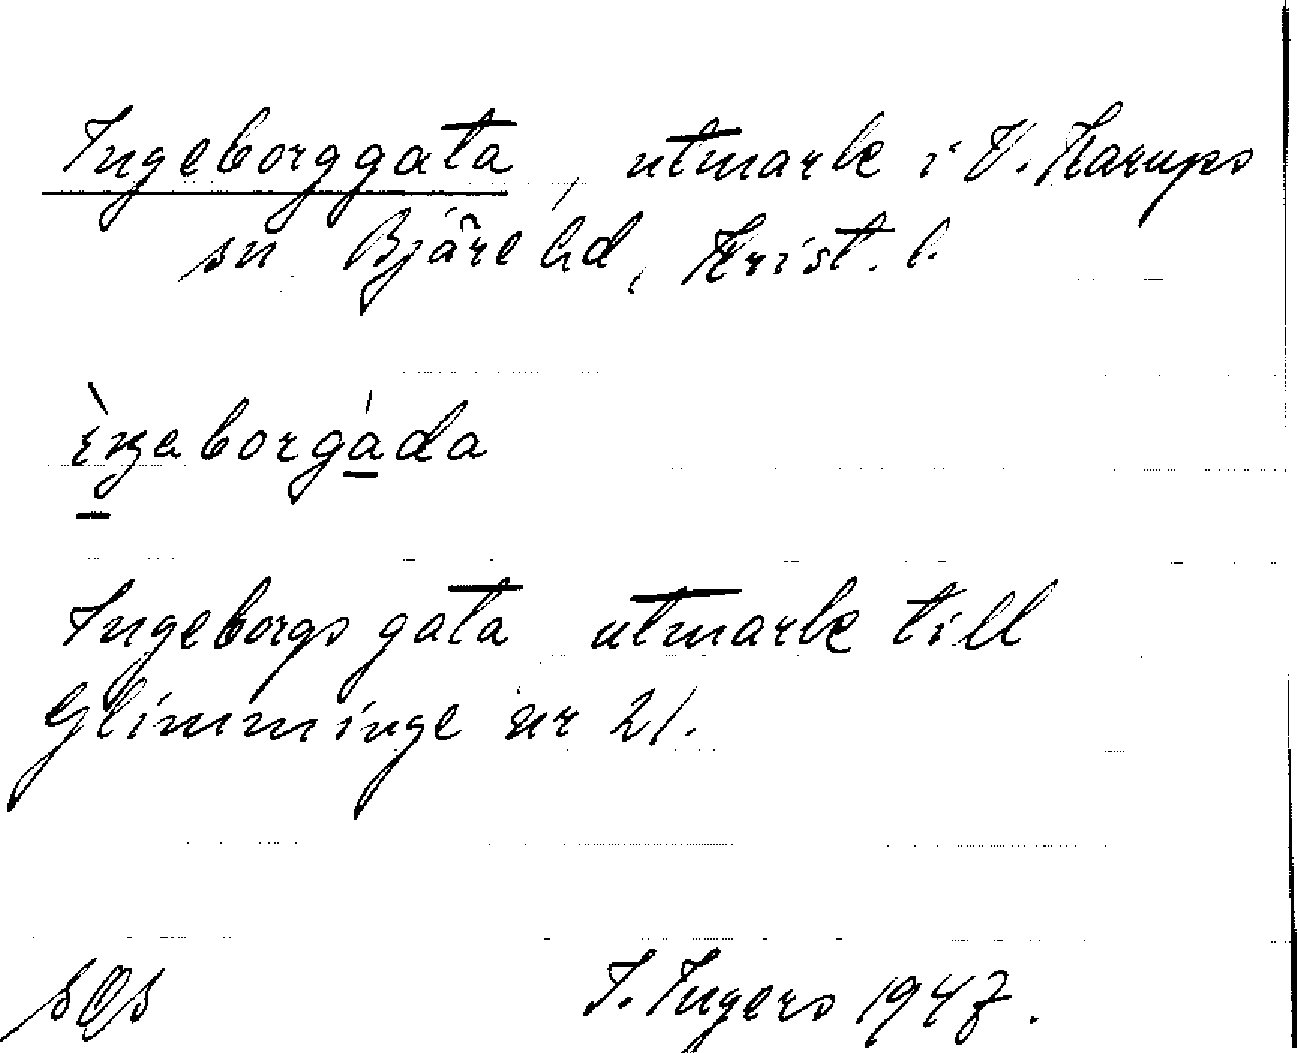 Ingeborggata, utmark i V. Karups
sn Bjäre hd, Krist. l.
ìŋaborgáda
Ingeborgs gata utmark till
Glimminge nr 21.
I. Ingers 1947.